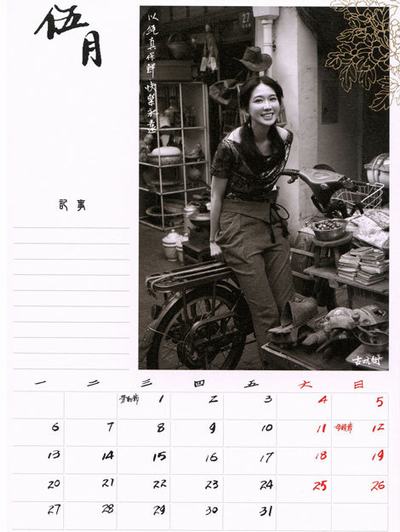 伍月
以純真 快樂永遠
27
記事
一 二 三 四 五 六 日
勞動節 1 2 3 4 5
6 7 8 9 10 11 母親節 12
13 14 15 16 17 18 19
20 21 22 23 24 25 26
27 28 29 30 31